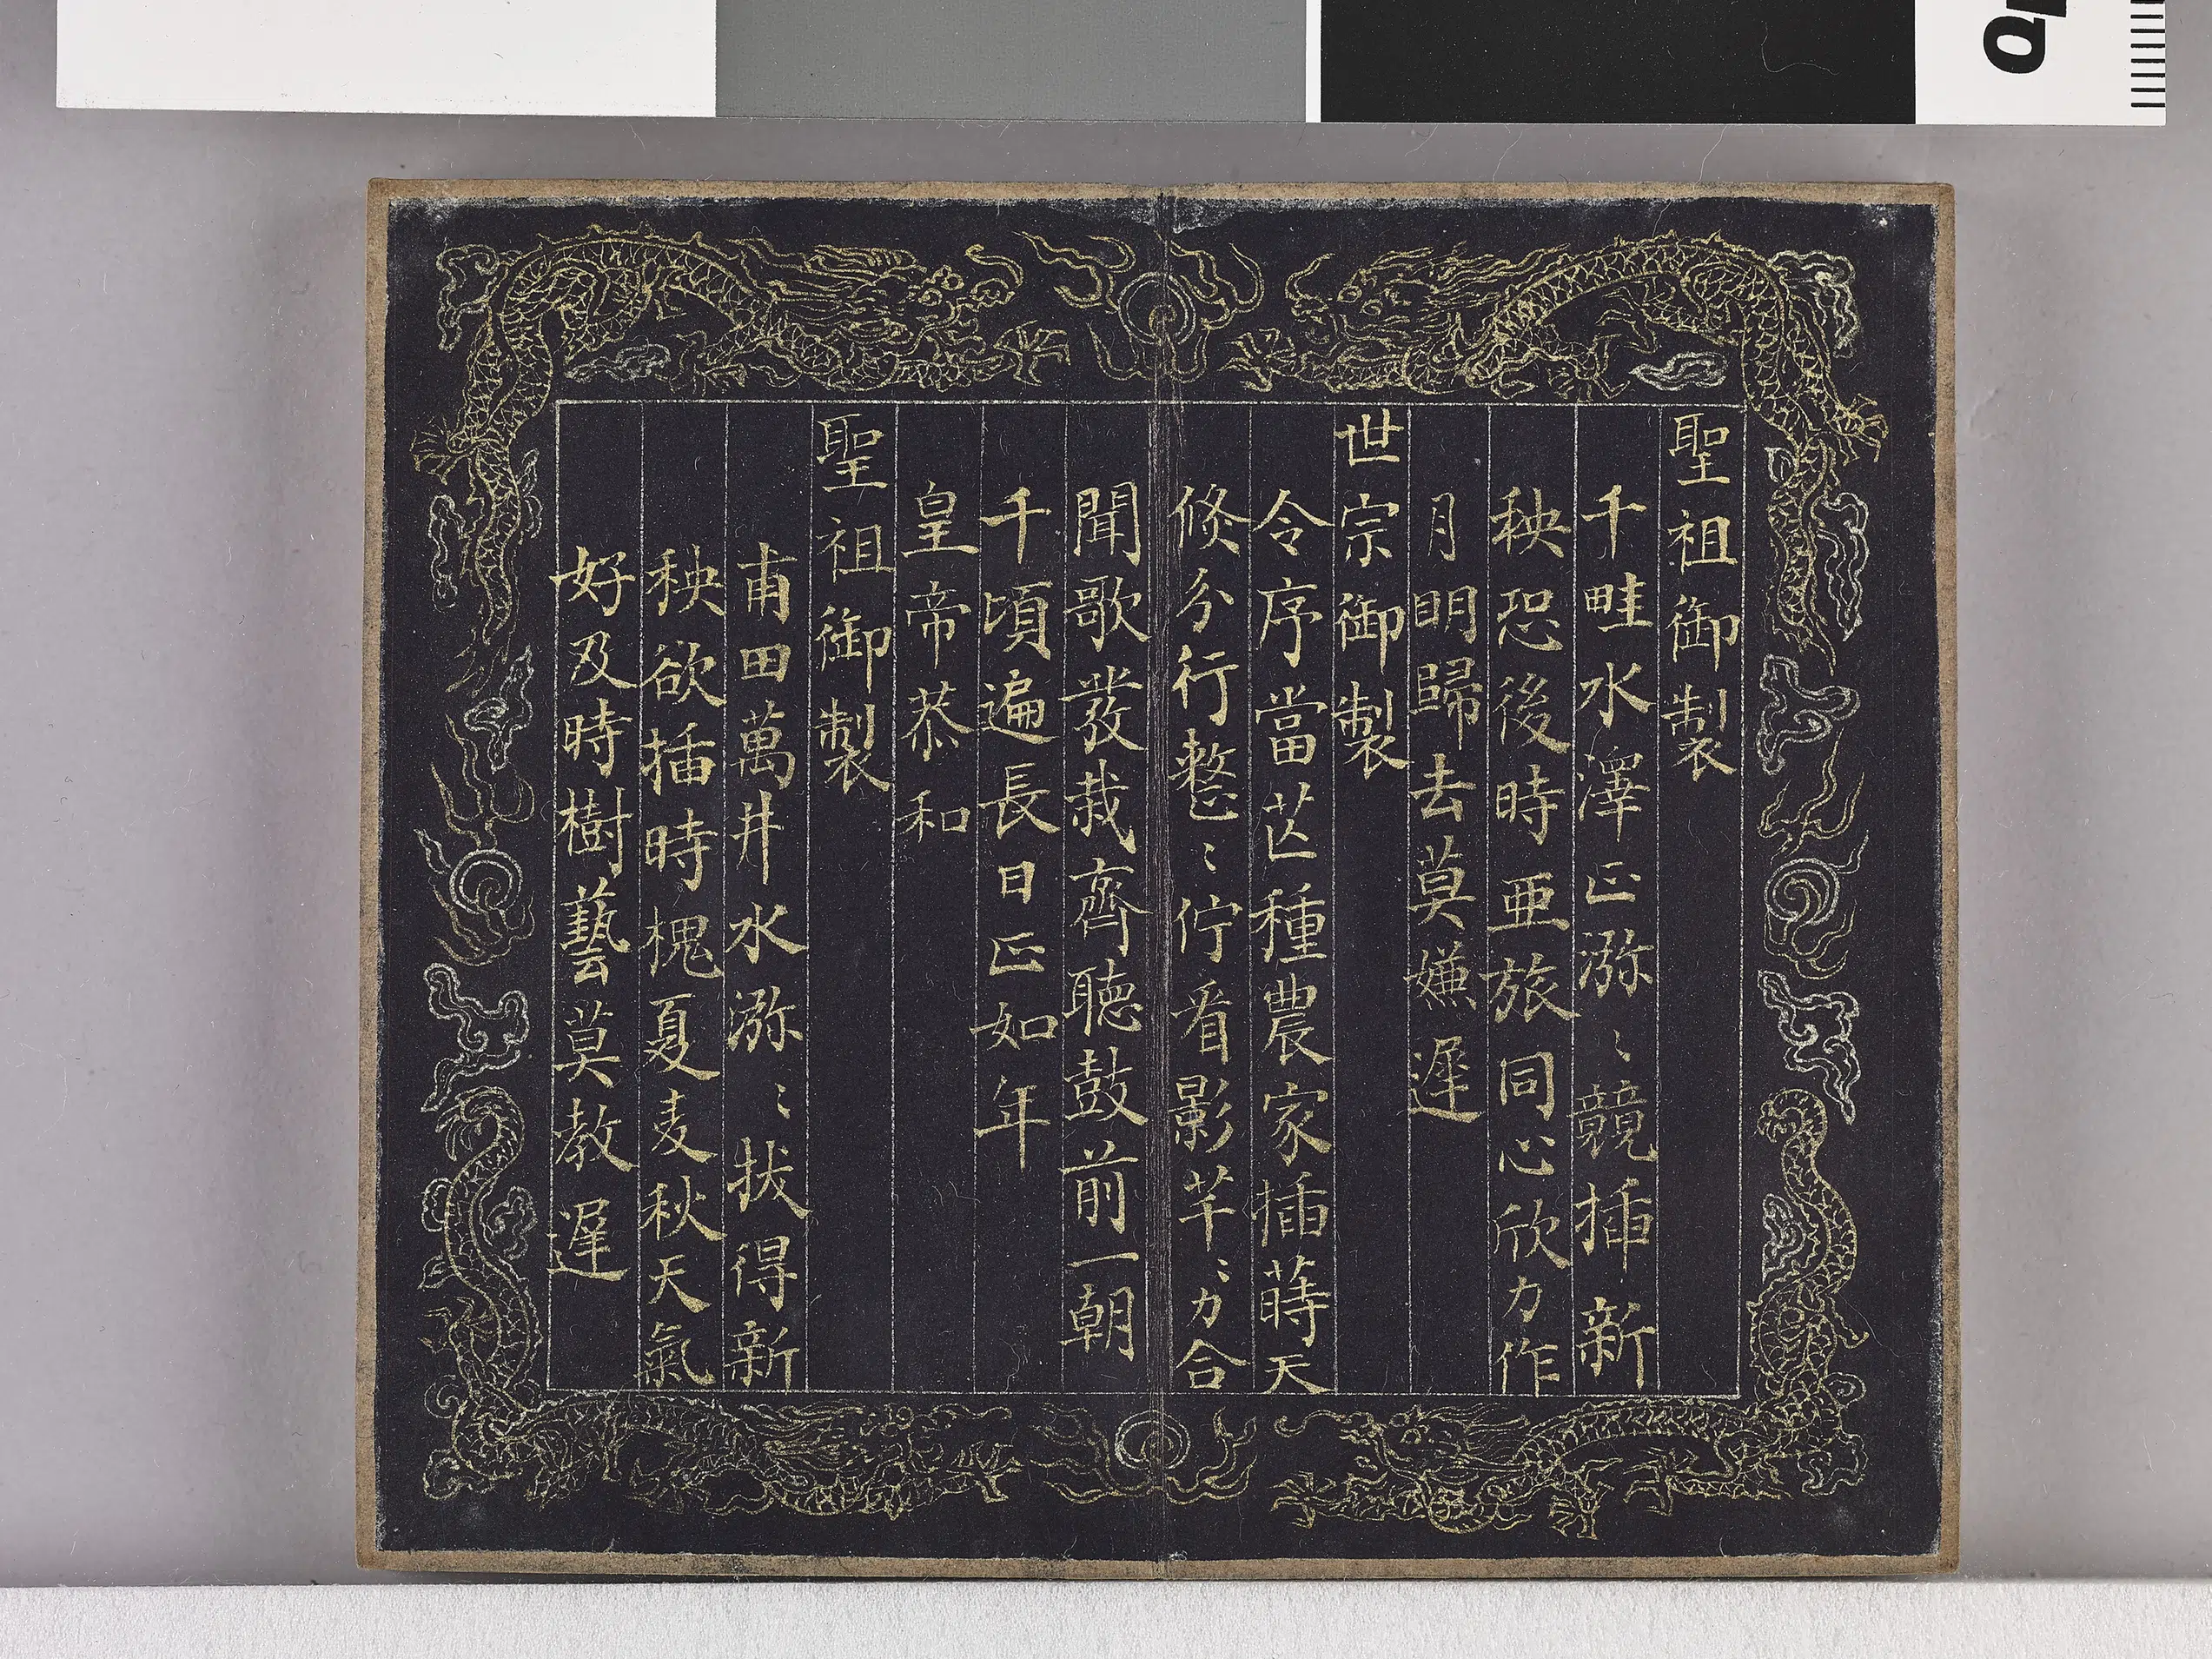 聖祖御製
千畦水澤正瀰〻競插新
秧恐後時亜旅同心欣力作
月明歸去莫嫌遲
世宗御製
令序當芒種農家插蒔天
倐分行整〻佇看影芊〻力合
聞歌發栽齊聽鼓前一朝
千頃遍長日正如年
皇帝恭和
聖祖御製
甫田萬井水瀰〻拔得新
秧欲插時槐夏麦秋天氣
好及時樹藝莫教遲